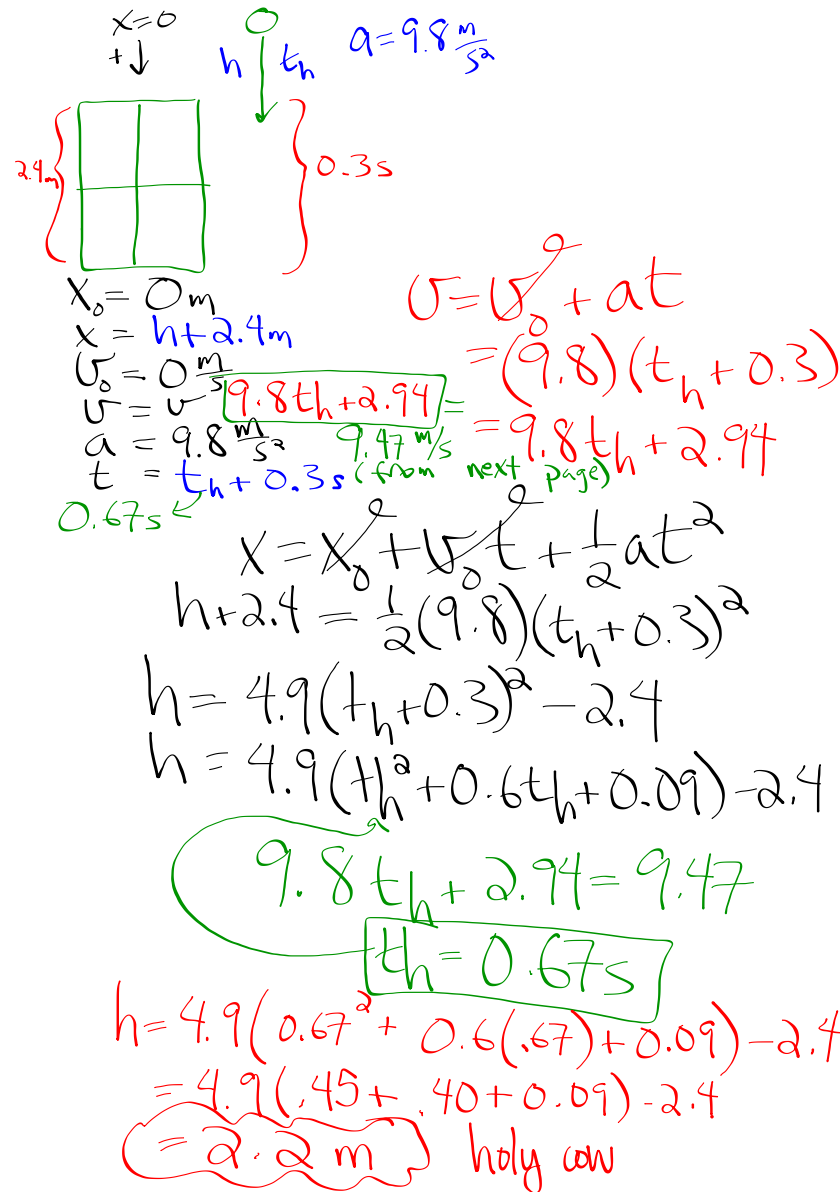 x=0
+↓
h
t_h
a=9.8 m/s²
2.4m
0.3s
x₀= 0m
x = h+2.4m
v₀= 0 m/s
v= v
9.8t_h+2.94 =
a = 9.8 m/s²
9.47 m/s
t = t_h+0.3s (from next page)
0.67s ←
v=v₀+at
=(9.8)(t_h+0.3)
=9.8t_h+2.94
x=x₀+v₀t+½at²
h+2.4 = ½(9.8)(t_h+0.3)²
h= 4.9(t_h+0.3)²-2.4
h = 4.9(t_h²+0.6t_h+0.09)-2.4
9.8t_h+2.94=9.47
t_h=0.67s
h=4.9(0.67²+ 0.6(.67)+0.09)-2.4
=4.9(.45+ .40+0.09)-2.4
=2.2 m holy cow